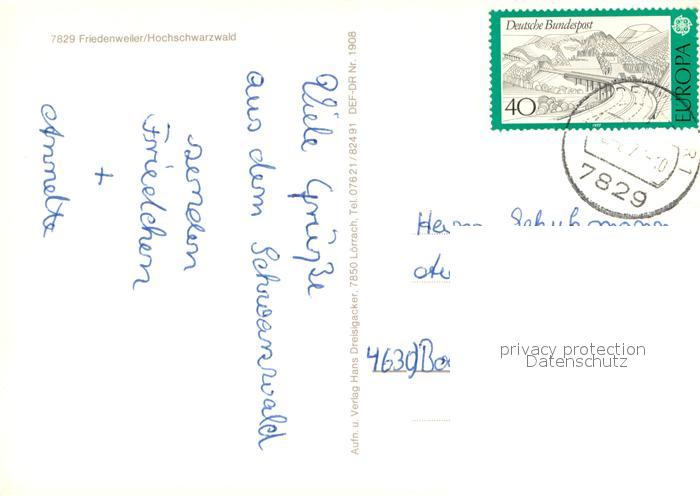 7829 Friedenweiler/Hochschwarzwald
Viele Grüße
aus dem Schwarzwald
senden
Friedchen
+
Annette
Aufn. u. Verlag Hans Dreisigacker, 7850 Lörrach, Tel. 07621/82491 DEF-DR Nr. 1908
Deutsche Bundespost
40
EUROPA
7829
Herrn Schuhmann
4630
privacy protection
Datenschutz